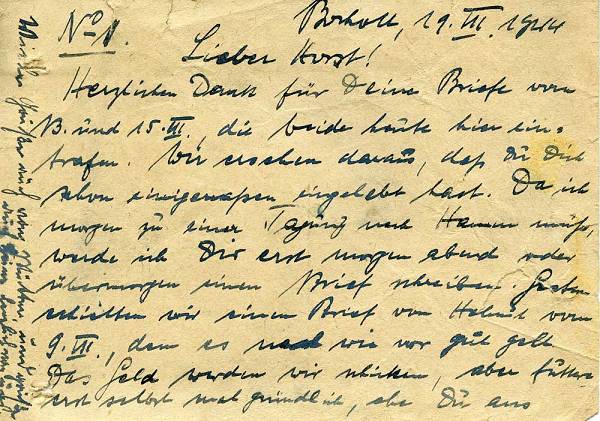 No 1. Bocholt, 19. III. 1944
Lieber Horst!
Herzlichen Dank für Deine Briefe vom
13. und 15. III., die beide heute hier ein-
trafen. Wir ersehen daraus, daß Du Dich
schon einigermaßen eingelebt hast. Da ich
morgen zu einer Tagung nach Hamm muß,
werde ich Dir erst morgen abend oder
übermorgen einen Brief schreiben. Gestern
erhielten wir einen Brief von Helmut vom
9. III., dem es nach wie vor gut geht
Das Geld werden wir schicken, aber futtere
erst selbst mal gründlich, ehe Du uns